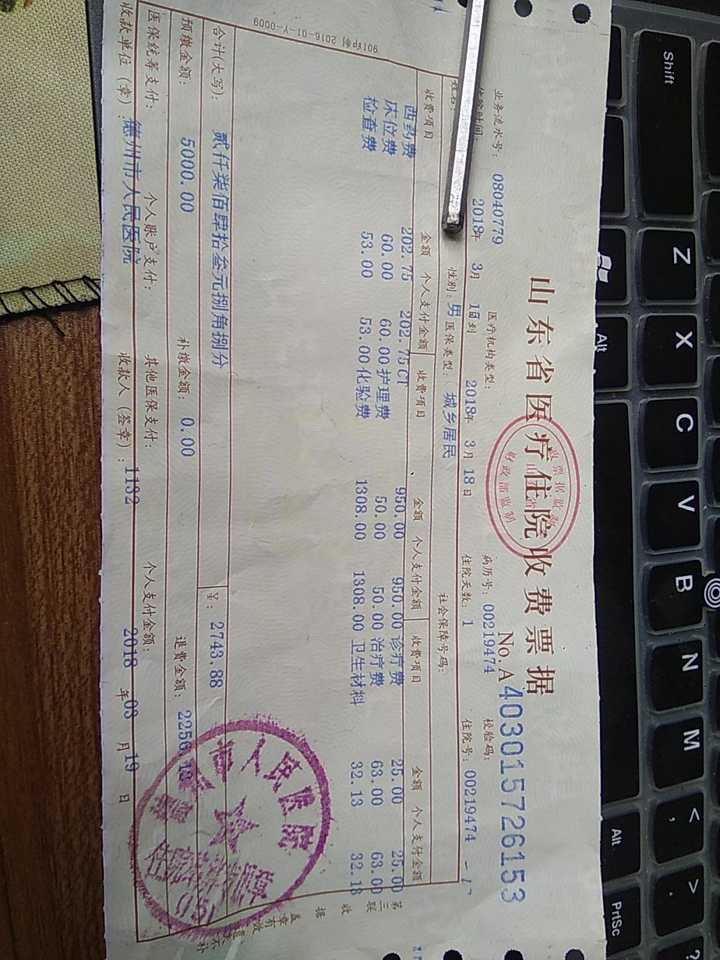 山东省医疗住院收费票据
No.A 4030157726153
业务流水号: 08040779 医疗机构类型: 病历号: 00219474 校验码:
住院时间: 2018年 3月 18日到 2018年 3月 18日 住院天数: 1 住院号: 00219474
性别: 男 医保类型: 城乡居民 社会保障号码:
收费项目 金额 个人支付金额 收费项目 金额 个人支付金额 收费项目 金额 个人支付金额
西药费 202.75 202.75 CT 950.00 950.00 诊疗费 25.00 25.00
床位费 60.00 60.00 护理费 50.00 50.00 治疗费 63.00 63.00
检查费 53.00 53.00 化验费 1308.00 1308.00 卫生材料 32.13 32.13
合计(大写): 贰仟柒佰肆拾叁元捌角捌分 2743.88
预缴金额: 5000.00 补缴金额: 0.00 退费金额:
医保统筹支付: 个人账户支付: 其他医保支付: 个人支付金额:
收款单位(章): 德州市人民医院 收款人(签章): 1132 2018年 03月 19日
第三联
收据
901印制 2016-01-Y-0009
市人民医院
(15)
Shift
Z
X
C
V
B
N
M
<
,
>
.
?
Alt
Alt
PrtSc